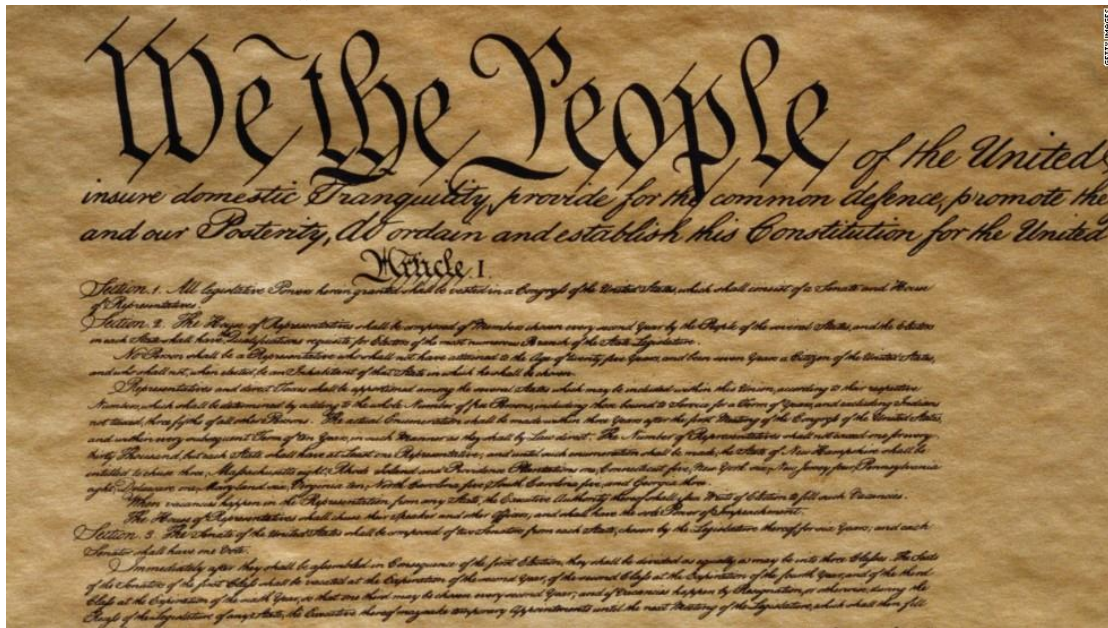 We the People of the United
insure domestic Tranquility, provide for the common defence, promote the
and our Posterity, do ordain and establish this Constitution for the United
Article. I.
Section. 1. All legislative Powers herein granted shall be vested in a Congress of the United States, which shall consist of a Senate and House
of Representatives.
Section. 2. The House of Representatives shall be composed of Members chosen every second Year by the People of the several States, and the Electors
in each State shall have Qualifications requisite for Electors of the most numerous Branch of the State Legislature.
No Person shall be a Representative who shall not have attained to the Age of twenty five Years, and been seven Years a Citizen of the United States,
and who shall not, when elected, be an Inhabitant of that State in which he shall be chosen.
Representatives and direct Taxes shall be apportioned among the several States which may be included within this Union, according to their respective
Numbers, which shall be determined by adding to the whole Number of free Persons, including those bound to Service for a Term of Years, and excluding Indians
not taxed, three fifths of all other Persons. The actual Enumeration shall be made within three Years after the first Meeting of the Congress of the United States,
and within every subsequent Term of ten Years, in such Manner as they shall by Law direct. The Number of Representatives shall not exceed one for every
thirty Thousand, but each State shall have at Least one Representative; and until such enumeration shall be made, the State of New Hampshire shall be
entitled to chuse three, Massachusetts eight, Rhode Island and Providence Plantations one, Connecticut five, New York six, New Jersey four, Pennsylvania
eight, Delaware one, Maryland six, Virginia ten, North Carolina five, South Carolina five, and Georgia three.
When vacancies happen in the Representation from any State, the Executive Authority thereof shall issue Writs of Election to fill such Vacancies.
The House of Representatives shall chuse their Speaker and other Officers; and shall have the sole Power of Impeachment.
Section. 3. The Senate of the United States shall be composed of two Senators from each State, chosen by the Legislature thereof, for six Years; and each
Senator shall have one Vote.
Immediately after they shall be assembled in Consequence of the first Election, they shall be divided as equally as may be into three Classes. The Seats
of the Senators of the first Class shall be vacated at the Expiration of the second Year, of the second Class at the Expiration of the fourth Year, and of the third
Class at the Expiration of the sixth Year, so that one third may be chosen every second Year; and if Vacancies happen by Resignation, or otherwise, during the
Recess of the Legislature of any State, the Executive thereof may make temporary Appointments until the next Meeting of the Legislature, which shall then fill
GETTY IMAGES